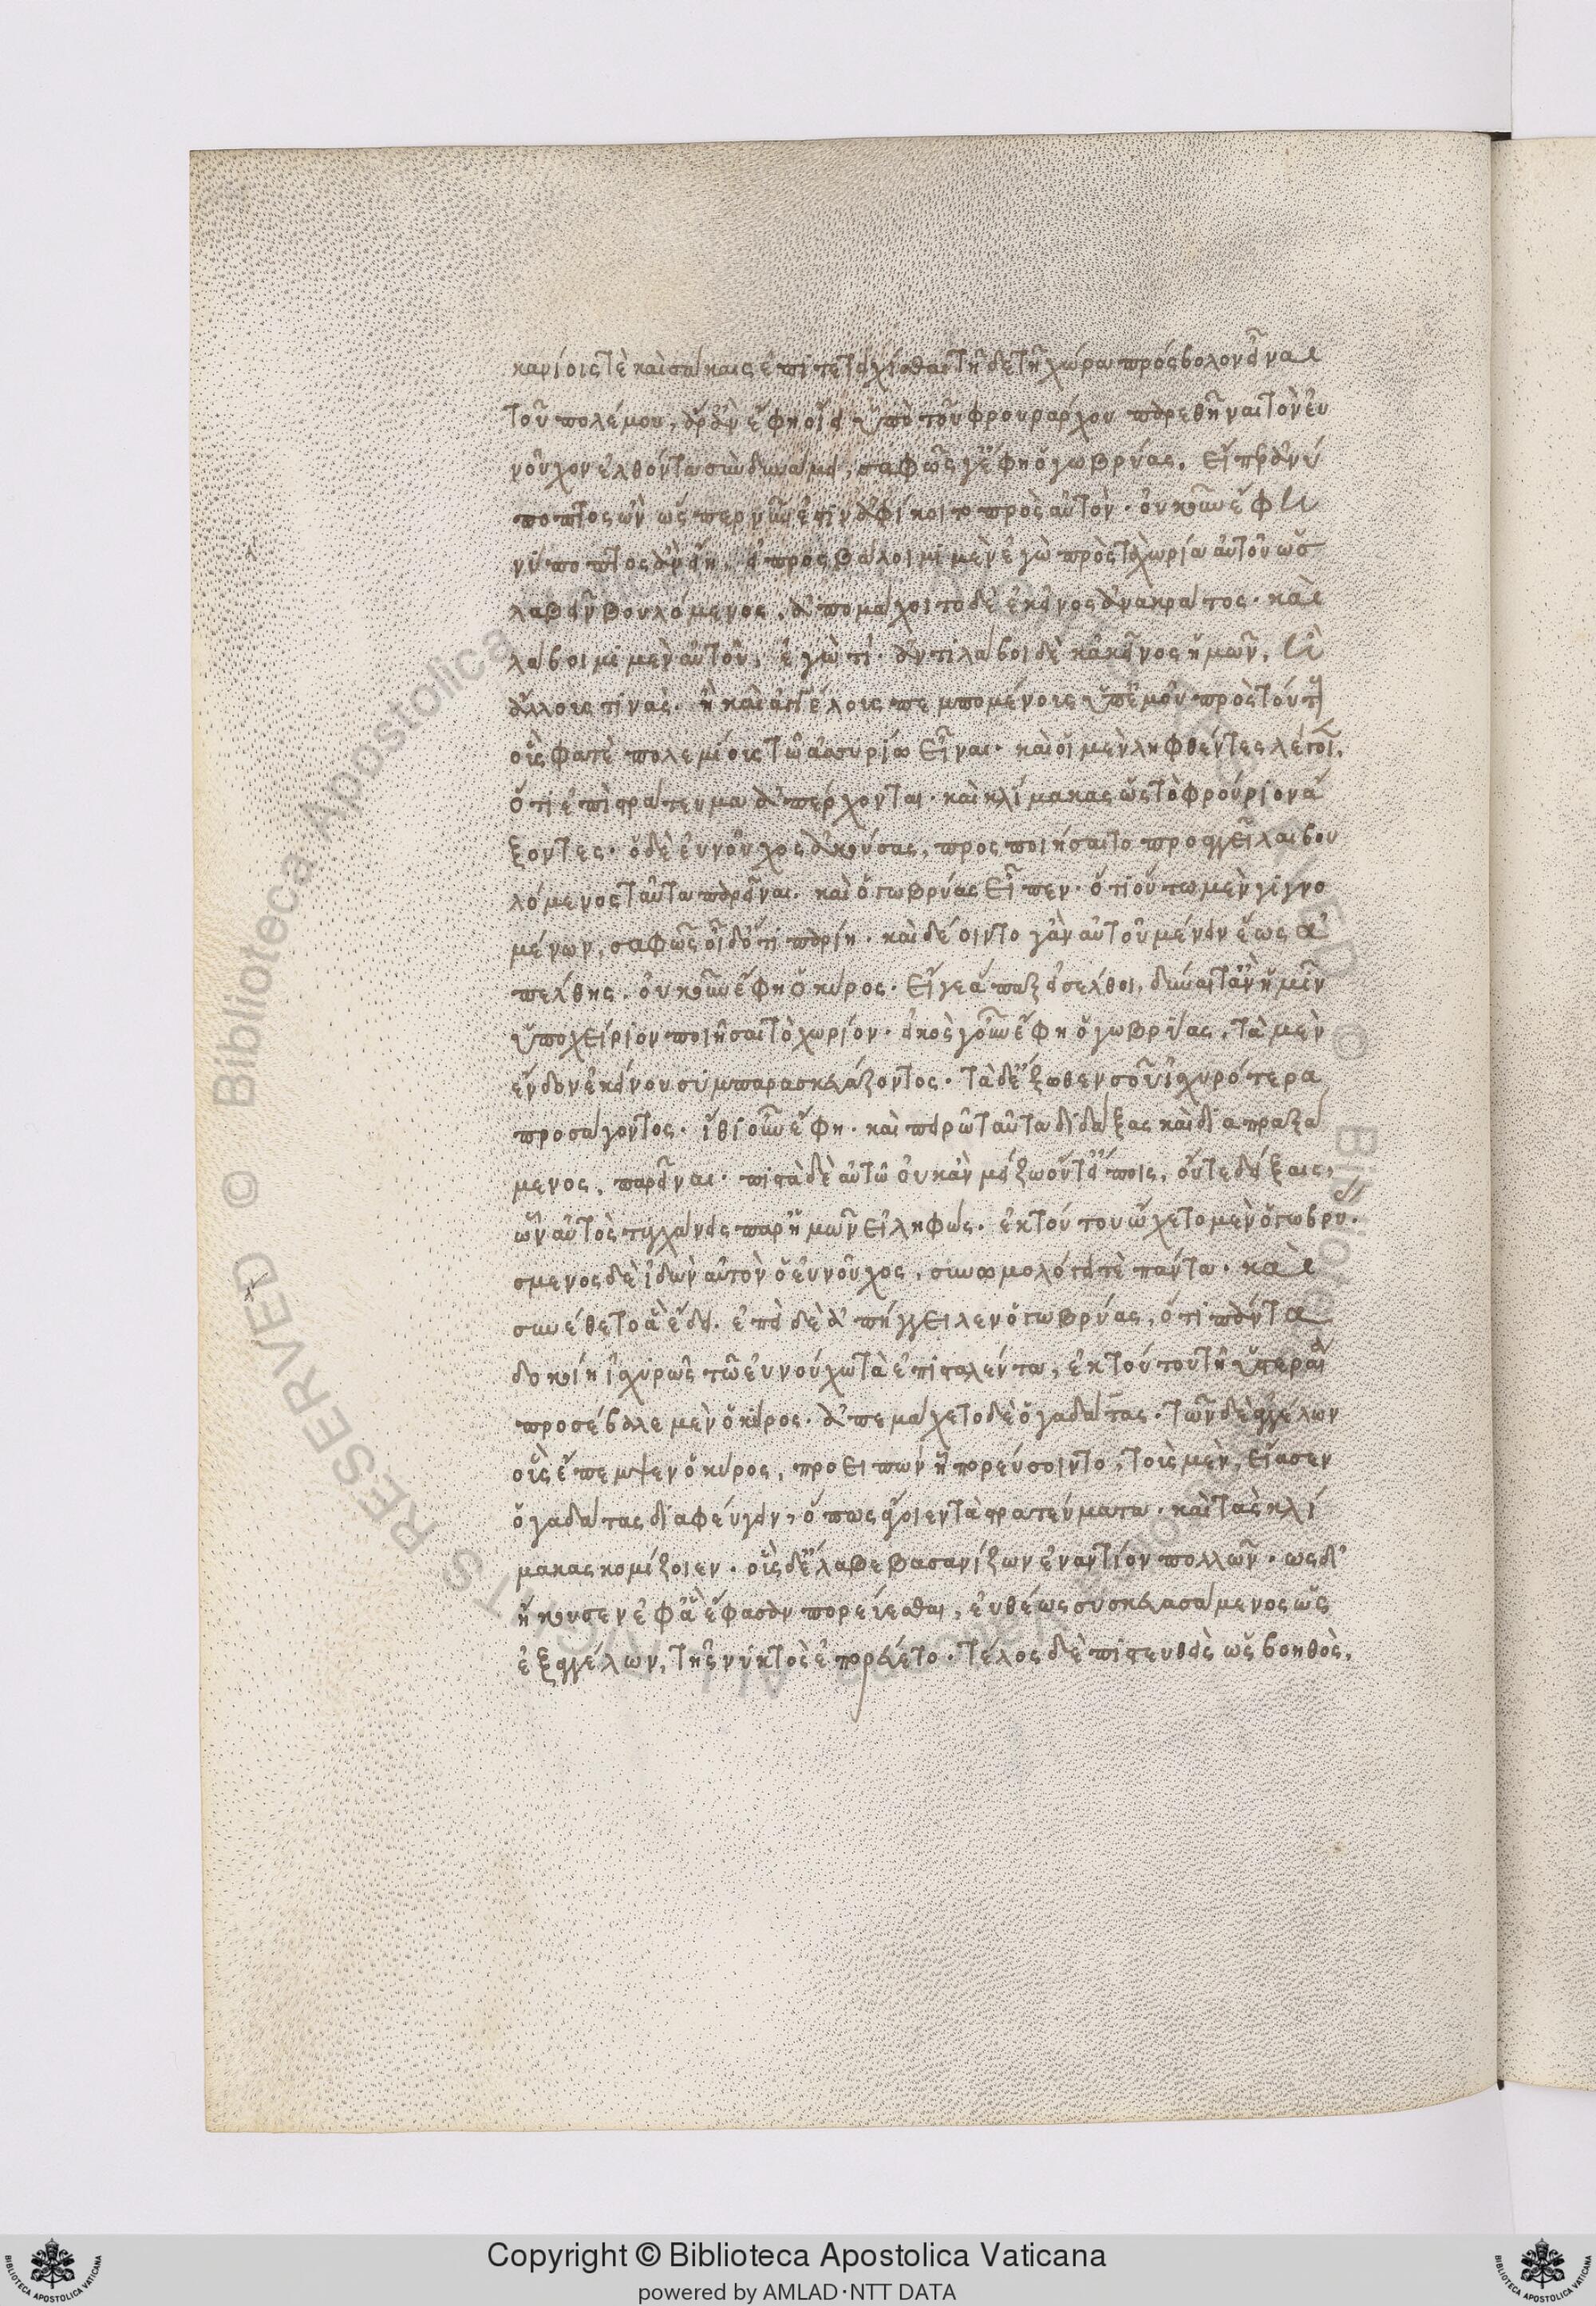 κανίοις τὲ καὶ σάκαις ἐπιτετειχίσθαι τῆδε τῆ χώρα πρόσβολον εἶναι
τοῦ πολέμου, ἆρ' ἂν ἔφη οἴει ὑπὸ τοῦ φρουράρχου παρεθῆναι τὸν εὐ
νοῦχον ἐλθόντα σὺν δυνάμει, σαφῶς γ' ἔφη ὁ γωβρύας, εἴπερ ἀνύ
ποπτος ὢν ὥσπερ νῦν ἐστιν ἀφίκοιτο πρὸς αὐτόν. οὐκοῦν ἔφη
νύποπτος ἂν εἴη, εἰ προσβάλοιμι μὲν ἐγὼ πρὸς τὰ χωρία αὐτοῦ ὡς
λαβεῖν βουλόμενος, ἀπομάχοιτο δὲ ἐκεῖνος ἀνακράτος. καὶ
λάβοιμι μὲν αὐτοῦ, ἐγώ τι. ἀντιλάβοι δὲ κἀκεῖνος ἡμῶν, ἢ
ἄλλους τινάς. ἢ καὶ ἀγγέλους πεμπομένους ὑπ' ἐμοῦ πρὸς τούτ
οἵς φατὲ πολεμίους τῶ ἀσσυρίω εἶναι. καὶ οἱ μὲν ληφθέντες λέγοι.
ὅτι ἐπὶ στράτευμα ἀπέρχονται. καὶ κλίμακας ὡς τὸ φρούριον ἄ
ξοντες. ὁ δὲ εὐνοῦχος ἀκούσας, προσποιήσαιτο προαγγεῖλαι βου
λόμενος ταῦτα παρεῖναι. καὶ ὁ γωβρύας εἶπεν. ὅτι οὕτω μὲν γιγνο
μένων, σαφῶς οἶδ' ὅτι παρίη. καὶ δέοιντο γ' ἂν αὐτοῦ μένειν ἕως ἀ
πέλθης. οὐκοῦν ἔφη ὁ κῦρος. εἴ γε ἅπαξ εἰσέλθοι, δύναιτ' ἂν ἡμῖν
ὑποχείριον ποιῆσαι τὸ χωρίον. εἰκὸς γοῦν ἔφη ὁ γωβρύας, τὰ μὲν
ἔνδον ἐκείνου συμπαρασκευάζοντος. τὰ δ' ἔξωθεν σοῦ ἰσχυρότερα
προσάγοντος. ἴθι οὖν ἔφη. καὶ πειρῶ ταῦτα διδάξας καὶ διαπραξά
μενος, παρεῖναι. πιστὰ δὲ αὐτῶ οὐκ ἂν μείζω οὔτ' εἴποις, οὔτε δείξαις,
ὧν αὐτὸς τυγχάνεις παρ' ἡμῶν εἰληφώς. ἐκ τούτου ὤχετο μὲν ὁ γωβρύ.
σμενος δὲ ἰδὼν αὐτὸν ὁ εὐνοῦχος, συνωμολόγει τὲ πάντα. καὶ
συνέθετο ἃ ἔδει. ἐπεὶ δὲ ἀπήγγειλεν ὁ γωβρύας, ὅτι πάντα
δοκοίη ἰσχυρῶς τῶ εὐνούχω τὰ ἐπισταλέντα, ἐκ τούτου τῆ ὑστεραία
προσέβαλε μὲν ὁ κῦρος. ἀπεμάχετο δὲ ὁ γαδάτας. τῶν δὲ ἀγγέλων
οὓς ἔπεμψεν ὁ κῦρος, προειπὼν ἧ πορεύσοιντο, τοὺς μὲν, εἴασεν
ὁ γαδάτας διαφεύγειν, ὅπως ἄγοιεν τὰ στρατεύματα. καὶ τὰς κλί
μακας κομίζοιεν. οὓς δ' ἔλαβε βασανίζων ἐναντίον πολλῶν. ὡς δ'
ἤκουσεν ἐφ' ἃ ἔφασαν πορεύεσθαι, εὐθέως συσκευασάμενος ὡς
ἐξαγγέλων, τῆς νυκτὸς ἐπορεύετο. τέλος δὲ πιστευθεὶς ὡς βοηθὸς,